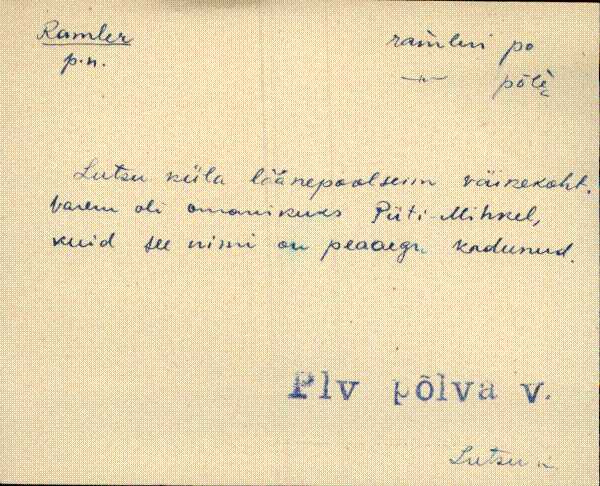 Ramler
p.n.
ramleri po
—"— põlè
Lutsu küla läänepoolseim väikekoht.
Varem oli omanikuks Püti-Mihkel,
kuid see nimi on peaaegu kadunud.
Plv põlva v.
Lutsu k.